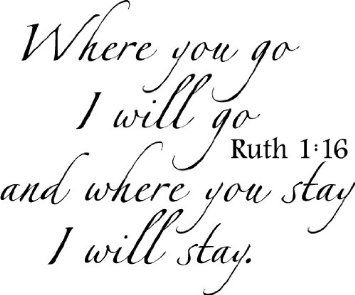 Where you go
I will go
Ruth 1:16
and where you stay
I will stay.